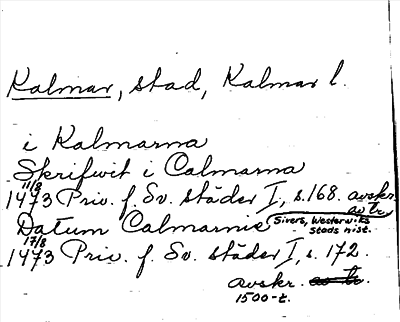 Kalmar, stad, Kalmar l.
i Kalmarna
Skrifwit i Calmarna
11/8
1473 Priv. f. Sv. städer I, s. 168. avskr.
av tr.
Datum Calmarnie (Sivers, Westerwiks
stads hist.
17/8
1473 Priv. f. Sv. städer I, s. 172.
avskr. av tr.
1500-t.